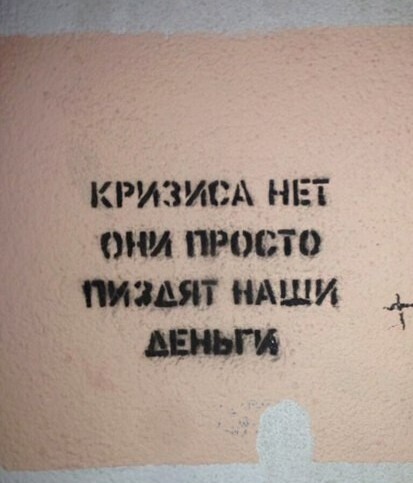 КРИЗИСА НЕТ
ОНИ ПРОСТО
ПИЗДЯТ НАШИ
ДЕНЬГИ